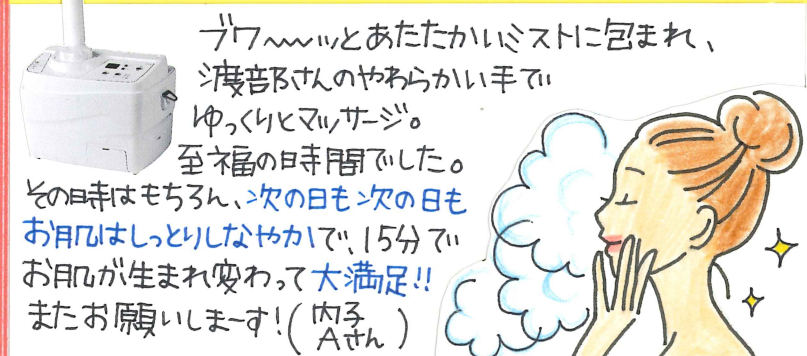 ブワ〜〜ッとあたたかいミストに包まれ、
渡部さんのやわらかい手で
ゆっくりとマッサージ。
至福の時間でした。
その時はもちろん、次の日も次の日も
お肌はしっとりしなやかで、15分で
お肌が生まれ変わって大満足!!
またお願いしまーす!(内子Aさん)